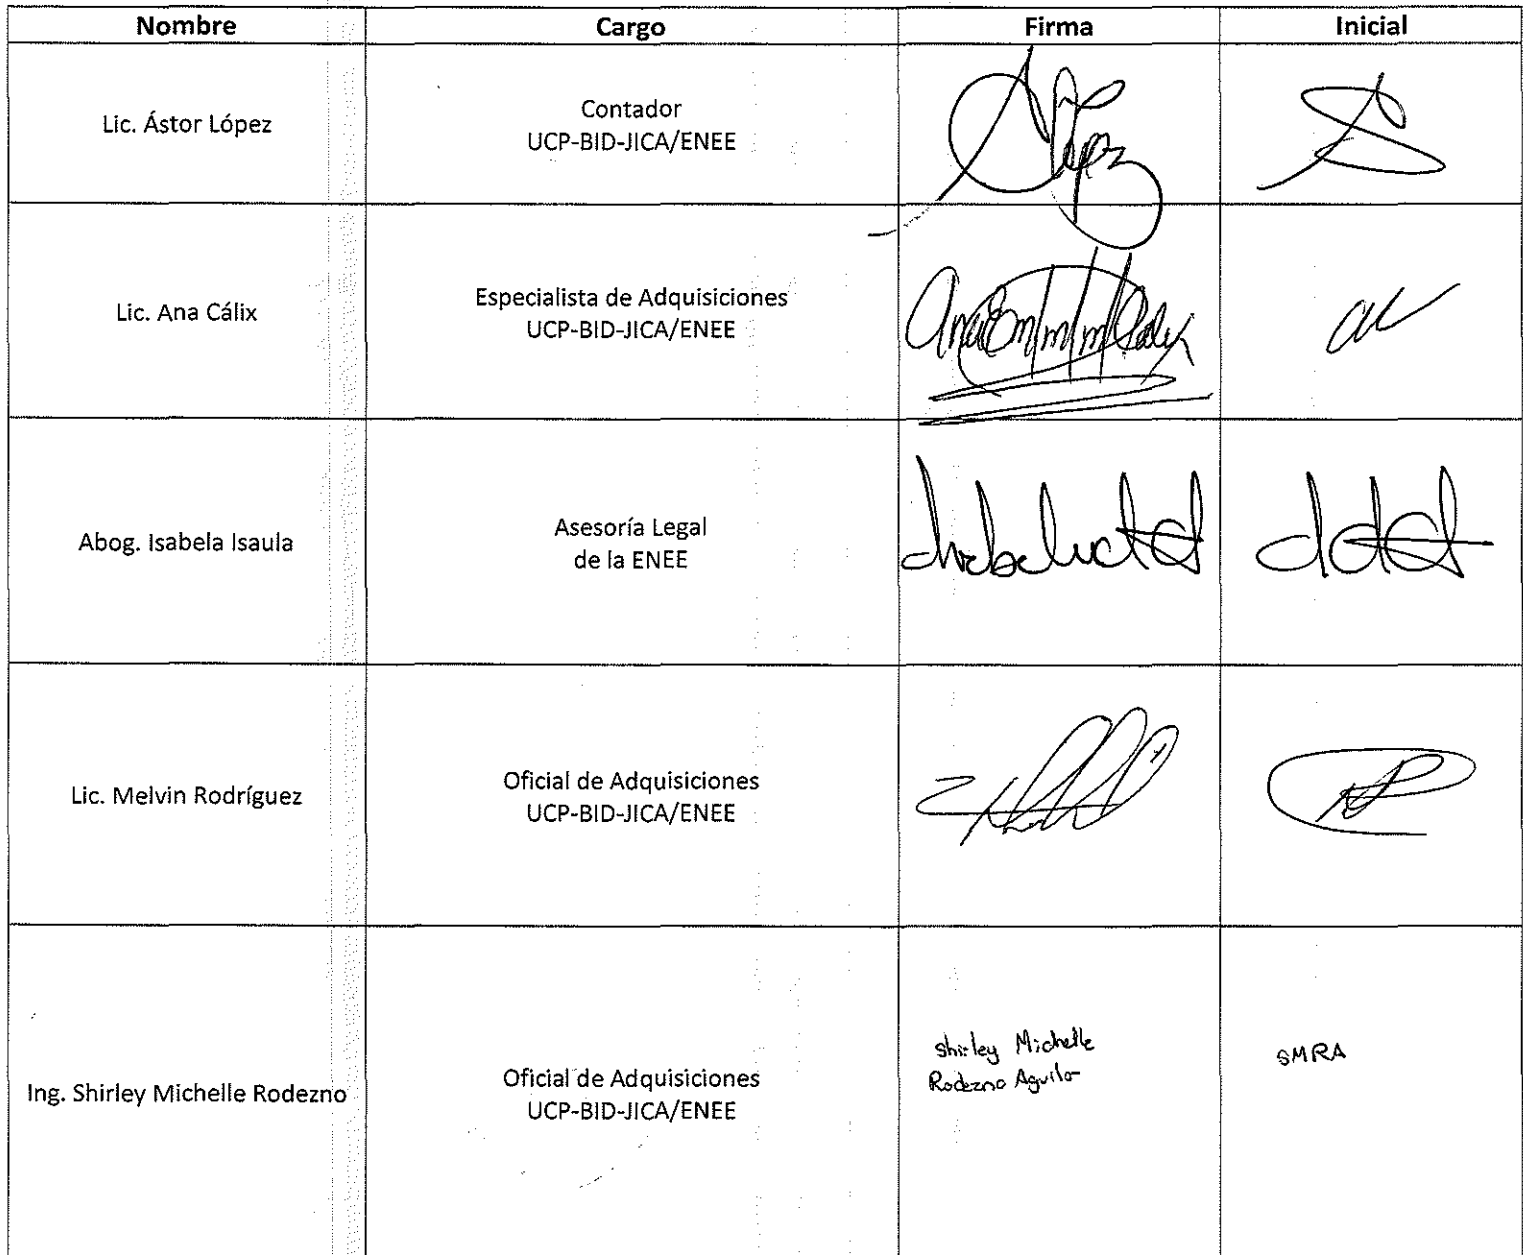 Nombre Cargo Firma Inicial
Lic. Ástor López
Contador
UCP-BID-JICA/ENEE
Lic. Ana Cálix
Especialista de Adquisiciones
UCP-BID-JICA/ENEE
Abog. Isabela Isaula
Asesoría Legal
de la ENEE
Lic. Melvin Rodríguez
Oficial de Adquisiciones
UCP-BID-JICA/ENEE
Ing. Shirley Michelle Rodezno
Oficial de Adquisiciones
UCP-BID-JICA/ENEE
Shirley Michelle
Rodezno Aguilar
SMRA